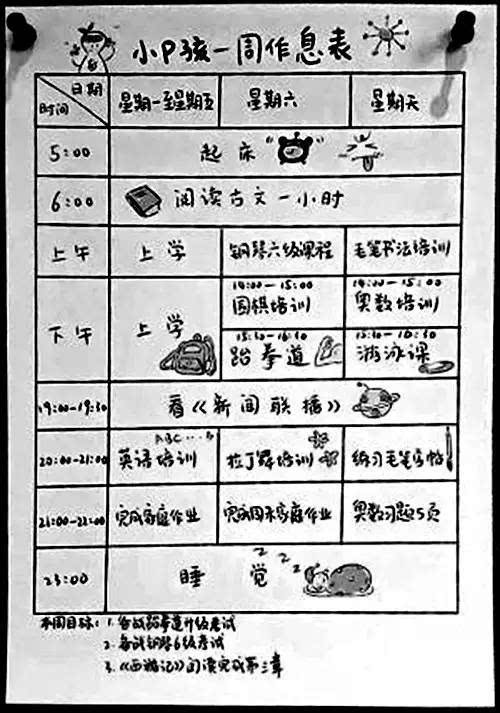 小P孩一周作息表
日期
时间
星期一至星期五 星期六 星期天
5:00 起床
6:00 阅读古文一小时
上午 上学 钢琴六级课程 毛笔书法培训
14:00—15:00 14:00—15:00
围棋培训 奥数培训
下午 上学
15:30—16:30 15:30—16:30
跆拳道 游泳课
19:00—19:30 看《新闻联播》
ABC...
20:00—21:00 英语培训 拉丁舞培训 练习毛笔字帖
21:00—22:00 完成家庭作业 完成周末家庭作业 奥数习题5页
23:00 睡觉 zzz
本周目标: 1. 备战跆拳道升级考试
2. 备战钢琴6级考试
3.《西游记》阅读完成第三章